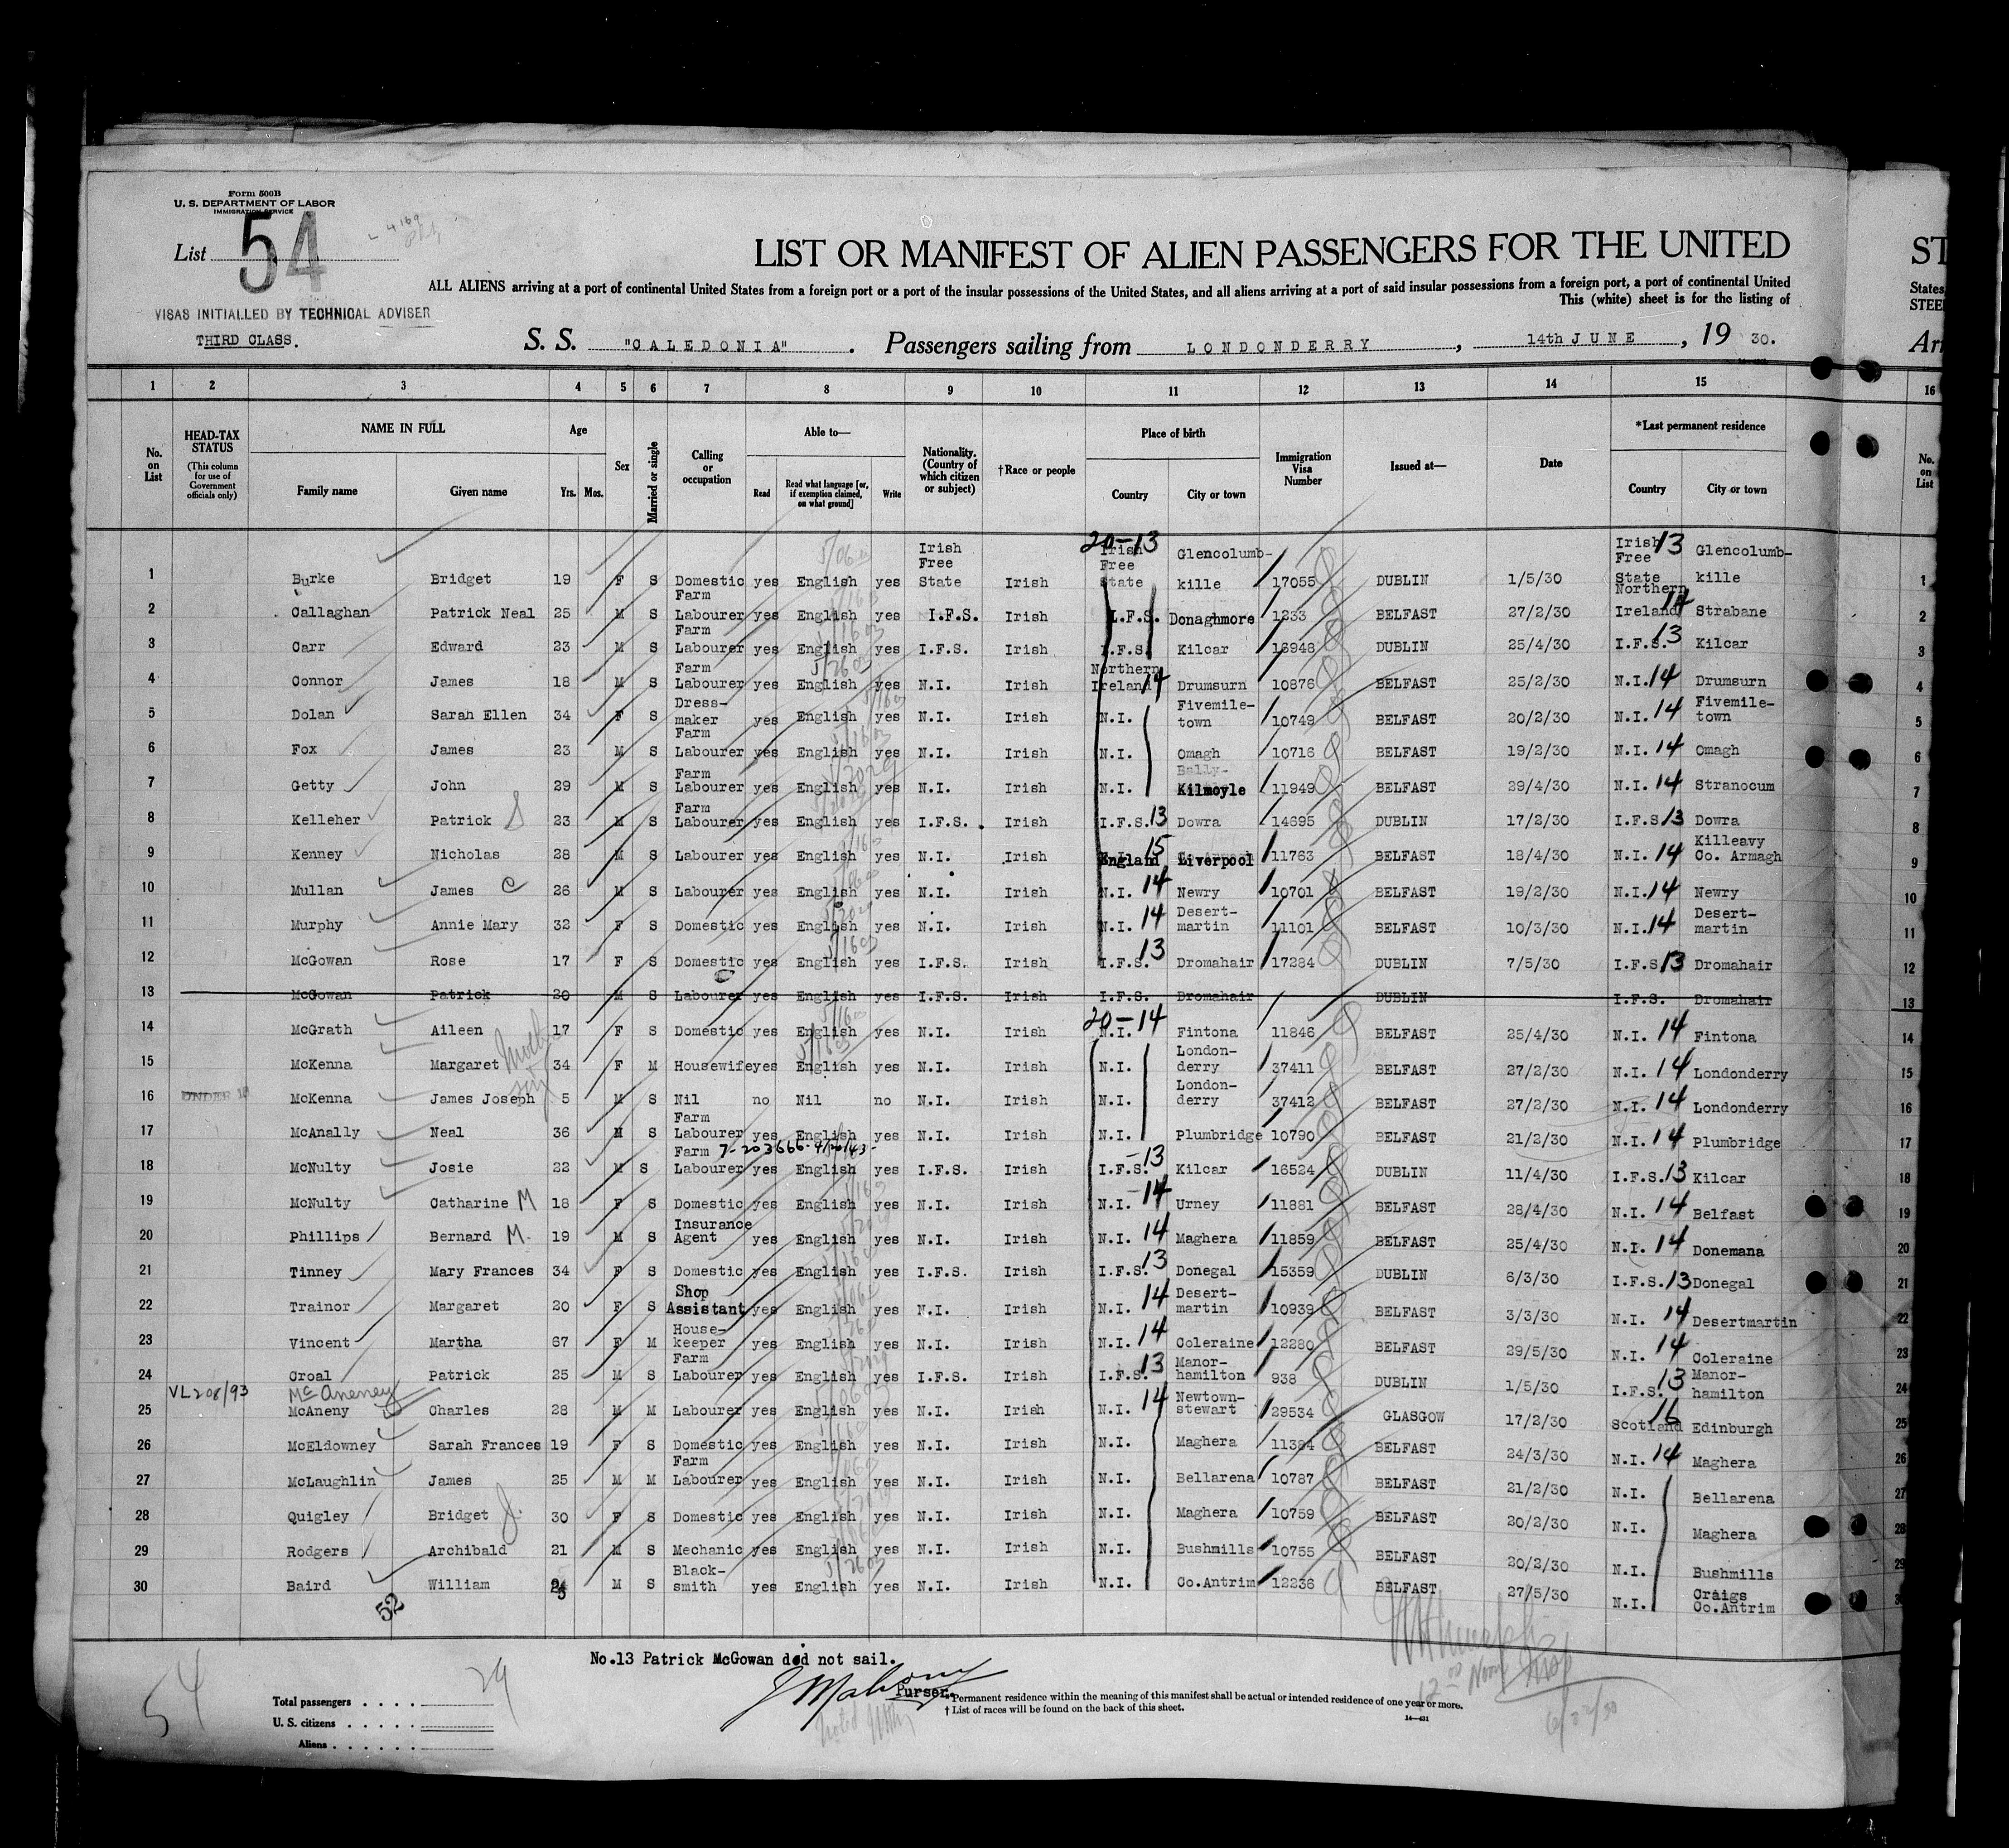 Form 500B
U. S. DEPARTMENT OF LABOR
IMMIGRATION SERVICE
List 54
VISAS INITIALLED BY TECHNICAL ADVISER
THIRD CLASS.
LIST OR MANIFEST OF ALIEN PASSENGERS FOR THE UNITED
ST
ALL ALIENS arriving at a port of continental United States from a foreign port or a port of the insular possessions of the United States, and all aliens arriving at a port of said insular possessions from a foreign port, a port of continental United
States,
This (white) sheet is for the listing of
STEE
S. S. "CALEDONIA". Passengers sailing from LONDONDERRY, 14th JUNE, 19 30.
Arr
1 2 3 4 5 6 7 8 9 10 11 12 13 14 15 16
No. on List
HEAD-TAX STATUS (This column for use of Government officials only)
NAME IN FULL
Family name Given name
Age
Yrs. Mos.
Sex
Married or single
Calling or occupation
Able to—
Read Read what language [or, if exemption claimed, on what ground] Write
Nationality. (Country of which citizen or subject)
†Race or people
Place of birth
Country City or town
Immigration Visa Number
Issued at—
Date
*Last permanent residence
Country City or town
No. on List
1 Burke Bridget 19 F S Domestic yes English yes Irish Free State Irish 20-13 Irish Free State Glencolumb-kille 17055 DUBLIN 1/5/30 Irish Free State 13 Glencolumb-kille 1
2 Callaghan Patrick Neal 25 M S Farm Labourer yes English yes I.F.S. Irish I.F.S. Donaghmore 1233 BELFAST 27/2/30 Northern Ireland 14 Strabane 2
3 Carr Edward 23 M S Farm Labourer yes English yes I.F.S. Irish I.F.S. Kilcar 16948 DUBLIN 25/4/30 I.F.S. 13 Kilcar 3
4 Connor James 18 M S Farm Labourer yes English yes N.I. Irish Northern Ireland 14 Drumsurn 10876 BELFAST 25/2/30 N.I. 14 Drumsurn 4
5 Dolan Sarah Ellen 34 F S Dress-maker yes English yes N.I. Irish N.I. Fivemile-town 10749 BELFAST 20/2/30 N.I. 14 Fivemile-town 5
6 Fox James 23 M S Farm Labourer yes English yes N.I. Irish N.I. Omagh 10716 BELFAST 19/2/30 N.I. 14 Omagh 6
7 Getty John 29 M S Farm Labourer yes English yes N.I. Irish N.I. Bally- Kilmoyle 11949 BELFAST 29/4/30 N.I. 14 Stranocum 7
8 Kelleher Patrick S 23 M S Farm Labourer yes English yes I.F.S. Irish I.F.S. 13 Dowra 14695 DUBLIN 17/2/30 I.F.S. 13 Dowra 8
9 Kenney Nicholas 28 M S Labourer yes English yes N.I. Irish England 15 Liverpool 11763 BELFAST 18/4/30 N.I. 14 Killeavy Co. Armagh 9
10 Mullan James C 26 M S Labourer yes English yes N.I. Irish N.I. 14 Newry 10701 BELFAST 19/2/30 N.I. 14 Newry 10
11 Murphy Annie Mary 32 F S Domestic yes English yes N.I. Irish N.I. 14 Desert-martin 11101 BELFAST 10/3/30 N.I. 14 Desert-martin 11
12 McGowan Rose 17 F S Domestic yes English yes I.F.S. Irish I.F.S. 13 Dromahair 17284 DUBLIN 7/5/30 I.F.S. 13 Dromahair 12
13 McGowan Patrick 20 M S Labourer yes English yes I.F.S. Irish I.F.S. Dromahair DUBLIN I.F.S. Dromahair 13
14 McGrath Aileen 17 F S Domestic yes English yes N.I. Irish 20-14 N.I. Fintona 11846 BELFAST 25/4/30 N.I. 14 Fintona 14
15 McKenna Margaret 34 F M Housewife yes English yes N.I. Irish N.I. London-derry 37411 BELFAST 27/2/30 N.I. 14 Londonderry 15
16 UNDER 16 McKenna James Joseph 5 M S Nil no Nil no N.I. Irish N.I. London-derry 37412 BELFAST 27/2/30 N.I. 14 Londonderry 16
17 McAnally Neal 36 M S Farm Labourer yes English yes N.I. Irish N.I. Plumbridge 10790 BELFAST 21/2/30 N.I. 14 Plumbridge 17
18 McNulty Josie 22 M S Farm Labourer yes English yes I.F.S. Irish I.F.S. -13 Kilcar 16524 DUBLIN 11/4/30 I.F.S. 13 Kilcar 18
19 McNulty Catharine M 18 F S Domestic yes English yes N.I. Irish N.I. -14 Urney 11881 BELFAST 28/4/30 N.I. 14 Belfast 19
20 Phillips Bernard M. 19 M S Insurance Agent yes English yes N.I. Irish N.I. 14 Maghera 11859 BELFAST 25/4/30 N.I. 14 Donemana 20
21 Tinney Mary Frances 34 F S Domestic yes English yes I.F.S. Irish I.F.S. 13 Donegal 15359 DUBLIN 6/3/30 I.F.S. 13 Donegal 21
22 Trainor Margaret 20 F S Shop Assistant yes English yes N.I. Irish N.I. 14 Desert-martin 10939 BELFAST 3/3/30 N.I. 14 Desertmartin 22
23 Vincent Martha 67 F M House-keeper yes English yes N.I. Irish N.I. 14 Coleraine 12280 BELFAST 29/5/30 N.I. 14 Coleraine 23
24 Croal Patrick 25 M S Farm Labourer yes English yes I.F.S. Irish I.F.S. 13 Manor-hamilton 938 DUBLIN 1/5/30 I.F.S. 13 Manor-hamilton 24
VL208/93 McAneney
25 McAneny Charles 28 M M Labourer yes English yes N.I. Irish N.I. 14 Newtown-stewart 29534 GLASGOW 17/2/30 Scotland 16 Edinburgh 25
26 McEldowney Sarah Frances 19 F S Domestic yes English yes N.I. Irish N.I. Maghera 11384 BELFAST 24/3/30 N.I. 14 Maghera 26
27 McLaughlin James 25 M M Farm Labourer yes English yes N.I. Irish N.I. Bellarena 10787 BELFAST 21/2/30 N.I. Bellarena 27
28 Quigley Bridget J. 30 F S Domestic yes English yes N.I. Irish N.I. Maghera 10759 BELFAST 20/2/30 N.I. Maghera 28
29 Rodgers Archibald 21 M S Mechanic yes English yes N.I. Irish N.I. Bushmills 10755 BELFAST 20/2/30 N.I. Bushmills 29
30 Baird William M S Black-smith yes English yes N.I. Irish N.I. Co.Antrim 12236 BELFAST 27/5/30 N.I. Craigs Co.Antrim
52
No.13 Patrick McGowan did not sail.
Purser.
54
Total passengers . . . . 29
U. S. citizens . . . . .
Aliens . . . . . .
* Permanent residence within the meaning of this manifest shall be actual or intended residence of one year or more.
† List of races will be found on the back of this sheet.
14—431
12 00 Noon
6/22/30